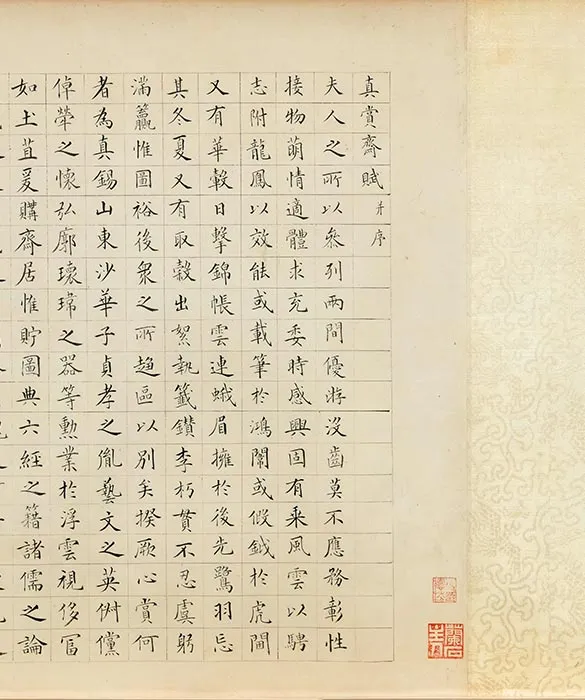 真賞齋賦 并序
夫人之所以叅列兩間優游沒齒莫不應務彰性
接物萌情適體求充委時感興固有乘風雲以騁
志附龍鳳以效能或載筆於鴻或假鉞於虎
又有華轂日擊錦帳雲連蛾眉擁於後先鷺羽忘
其冬夏又有取穀出絮執籤鑽李朽貫不忍虞躬
滿籯惟圖裕後衆之所趨區以別矣揆厥心賞何
者為真錫山東沙華子貞孝之胤藝文之英倜儻
倬犖之懷弘廓瓌瑋之器等勳業於浮雲視侈富
如土苴爰購齋居惟貯圖典六經之籍諸儒之論